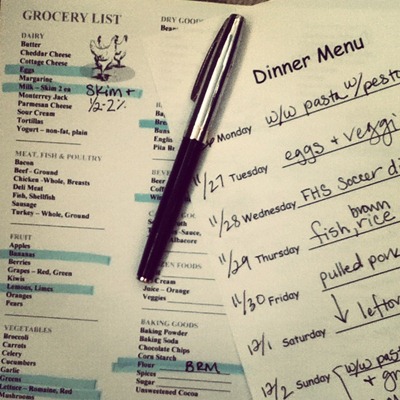 GROCERY LIST
DAIRY
Butter
Cheddar Cheese
Cottage Cheese
Eggs
Margarine
Milk - Skim 2 ea
Skim +
Monterey Jack
1/2-2%
Parmesan Cheese
Sour Cream
Tortillas
Yogurt - non-fat, plain
MEAT, FISH & POULTRY
Bacon
Beef - Ground
Chicken - Whole, Breasts
Deli Meat
Fish, Shellfish
Sausage
Turkey - Whole, Ground
FRUIT
Apples
Bananas
Berries
Grapes - Red, Green
Kiwis
Lemons, Limes
Oranges
Pears
VEGETABLES
Broccoli
Carrots
Celery
Cucumbers
Garlic
Greens
Lettuce - Romaine, Red
Mushrooms
DRY GOO
Pita
Juice - Orange
Veggies
BAKING GOODS
Baking Powder
Baking Soda
Chocolate Chips
Corn Starch
Flour BRM
Spices
Sugar
Unsweetened Cocoa
Dinner Menu
Monday w/w pasta w/pesto
11/27 Tuesday eggs + veggi
11/28 Wednesday FHS Soccer di
11/29 Thursday fish, brown rice
11/30 Friday pulled pork
12/1 Saturday ↓ leftov
12/2 Sunday w/w pas
+ g